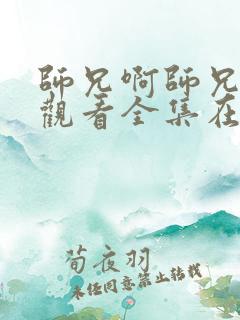 師兄啊師兄
觀看全集在
荀夜羽
未经同意禁止转载